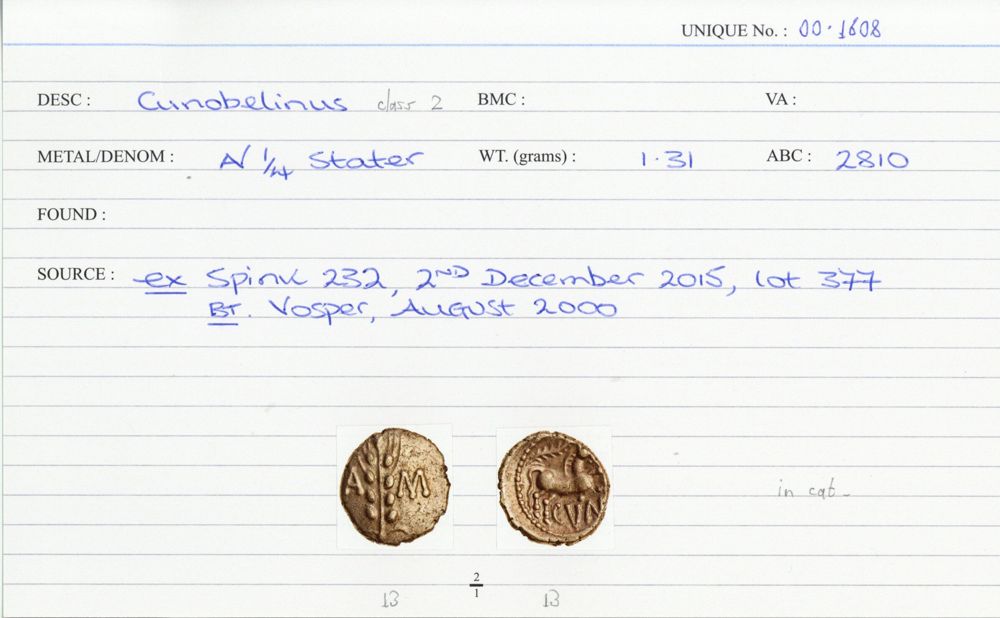 UNIQUE No. : 00·1608
DESC : Cunobelinus class 2 BMC : VA :
METAL/DENOM : A/ 1/4 Stater WT. (grams) : 1·31 ABC : 2810
FOUND :
SOURCE : ex Spink 232, 2ND December 2015, lot 377
BT. Vosper, AUGUST 2000
A M
CVN
in cat
2
1
13 13